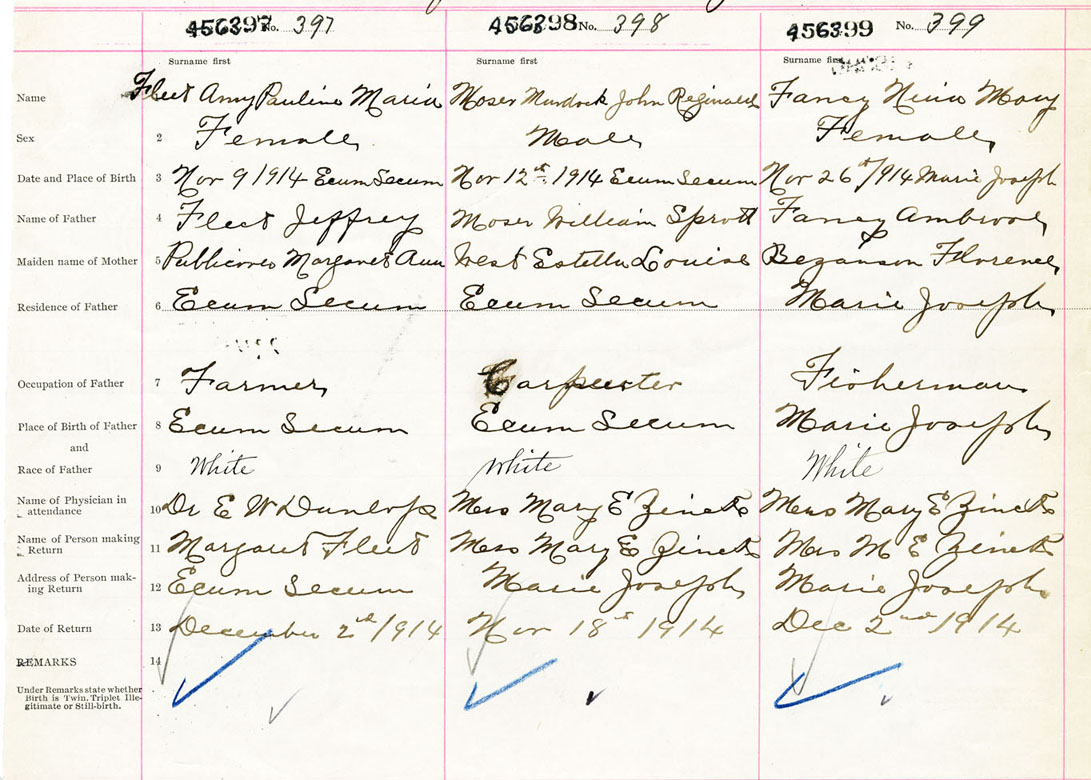 456397 No. 397 456398 No. 398 456399 No. 399
Surname first Surname first Surname first
Name Fleet Amy Pauline Maria Moser Murdock John Reginald Fancy Nina Mary
Sex 2 Female Male Female
Date and Place of Birth 3 Nov 9 1914 Ecum Secum Nov 12th 1914 Ecum Secum Nov 26th/1914 Marie Joseph
Name of Father 4 Fleet Jeffrey Moser William Sprott Fancy Ambrose
Maiden name of Mother 5 Publicover Margaret Ann West Estella Louise Beganson Florence
Residence of Father 6 Ecum Secum Ecum Secum Marie Joseph
Occupation of Father 7 Farmer Carpenter Fisherman
Place of Birth of Father 8 Ecum Secum Ecum Secum Marie Joseph
and
Race of Father 9 White White White
Name of Physician in
attendance 10 Dr E W Dunlop Mrs Mary E Zinck Mrs Mary E Zinck
Name of Person making
Return 11 Margaret Fleet Mrs Mary E Zinck Mrs M E Zinck
Address of Person mak-
ing Return 12 Ecum Secum Marie Joseph Marie Joseph
Date of Return 13 December 2nd/1914 Nov 18th 1914 Dec 2nd/1914
REMARKS 14
Under Remarks state whether
Birth is Twin, Triplet Ille-
gitimate or Still-birth.